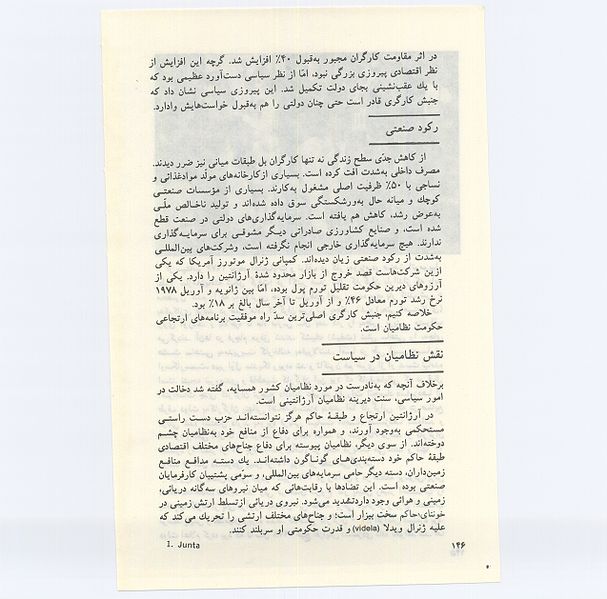 در اثر مقاومت کارگران مجبور به‌قبول ۴۰٪ افزایش شد. گرچه این افزایش از
نظر اقتصادی پیروزی بزرگی نبود، امّا از نظر سیاسی دست‌آورد عظیمی بود که
با یك عقب‌نشینی بجای دولت تکمیل شد. این پیروزی سیاسی نشان داد که
جنبش کارگری قادر است حتی چنان دولتی را هم به‌قبول خواست‌هایش وادارد.
رکود صنعتی
از کاهش جدّی سطح زندگی نه تنها کارگران بل طبقات میانی نیز ضرر دیدند.
مصرف داخلی به‌شدت افت کرده است. بسیاری ازکارخانه‌های مولّد موادغذائی و
نساجی با ۵۰٪ ظرفیت اصلی مشغول به‌کارند. بسیاری از مؤسسات صنعتی
کوچك و میانه حال به‌ورشکستگی سوق داده شده‌اند و تولید ناخالص ملّی
به‌عوض رشد، کاهش هم یافته است. سرمایه‌گذاری‌های دولتی در صنعت قطع
شده است، و صنایع کشاورزی صادراتی دیگر مشوقی برای سرمایه‌گذاری
ندارند. هیچ سرمایه‌گذاری خارجی انجام نگرفته است، وشرکت‌های بین‌المللی
به‌شدت از رکود صنعتی زیان دیده‌اند. کمپانی ژنرال موتورز آمریکا که یکی
ازین شرکت‌هاست قصد خروج از بازار محدود شدهٔ آرژانتین را دارد. یکی از
آرزوهای دیرین حکومت تقلیل تورم پول بوده، امّا بین ژانویه و آوریل ۱۹۷۸
نرخ رشد تورم معادل ۴۶٪ و از آوریل تا آخر سال بالغ بر ۱۸٪ بود.
خلاصه کنیم، جنبش کارگری اصلی‌ترین سدّ راه موفقیت برنامه‌های ارتجاعی
حکومت نظامیان است.
نقش نظامیان در سیاست
برخلاف آنچه که به‌نادرست در مورد نظامیان کشور همسایه، گفته شد دخالت در
امور سیاسی، سنت دیرینه نظامیان آرژانتینی است.
در آرژانتین ارتجاع و طبقهٔ حاکم هرگز نتوانسته‌اند حزب دست راستی
مستحکمی به‌وجود آورند، و همواره برای دفاع از منافع خود به‌نظامیان چشم
دوخته‌اند. از سوی دیگر، نظامیان پیوسته برای دفاع جناح‌های مختلف اقتصادی
طبقهٔ حاکم خود دسته‌بندی‌های گوناگون داشته‌اند. یك دسته مدافع منافع
زمین‌داران، دسته دیگر حامی سرمایه‌های بین‌المللی، و سوّمی پشتیبان کارفرمایان
صنعتی بوده است. این تضادها با رقابت‌هائی که میان نیروهای سه‌گانه دریائی،
زمینی و هوائی وجود داردتشدید می‌شود. نیروی دریائی ازتسلط ارتش زمینی در
خونتای۱حاکم سخت بیزار است؛ و جناح‌های مختلف ارتشی را تحریك می‌کند که
علیه ژنرال ویدلا (videla) و قدرت حکومتی او سربلند کنند.
1. Junta
۱۴۶